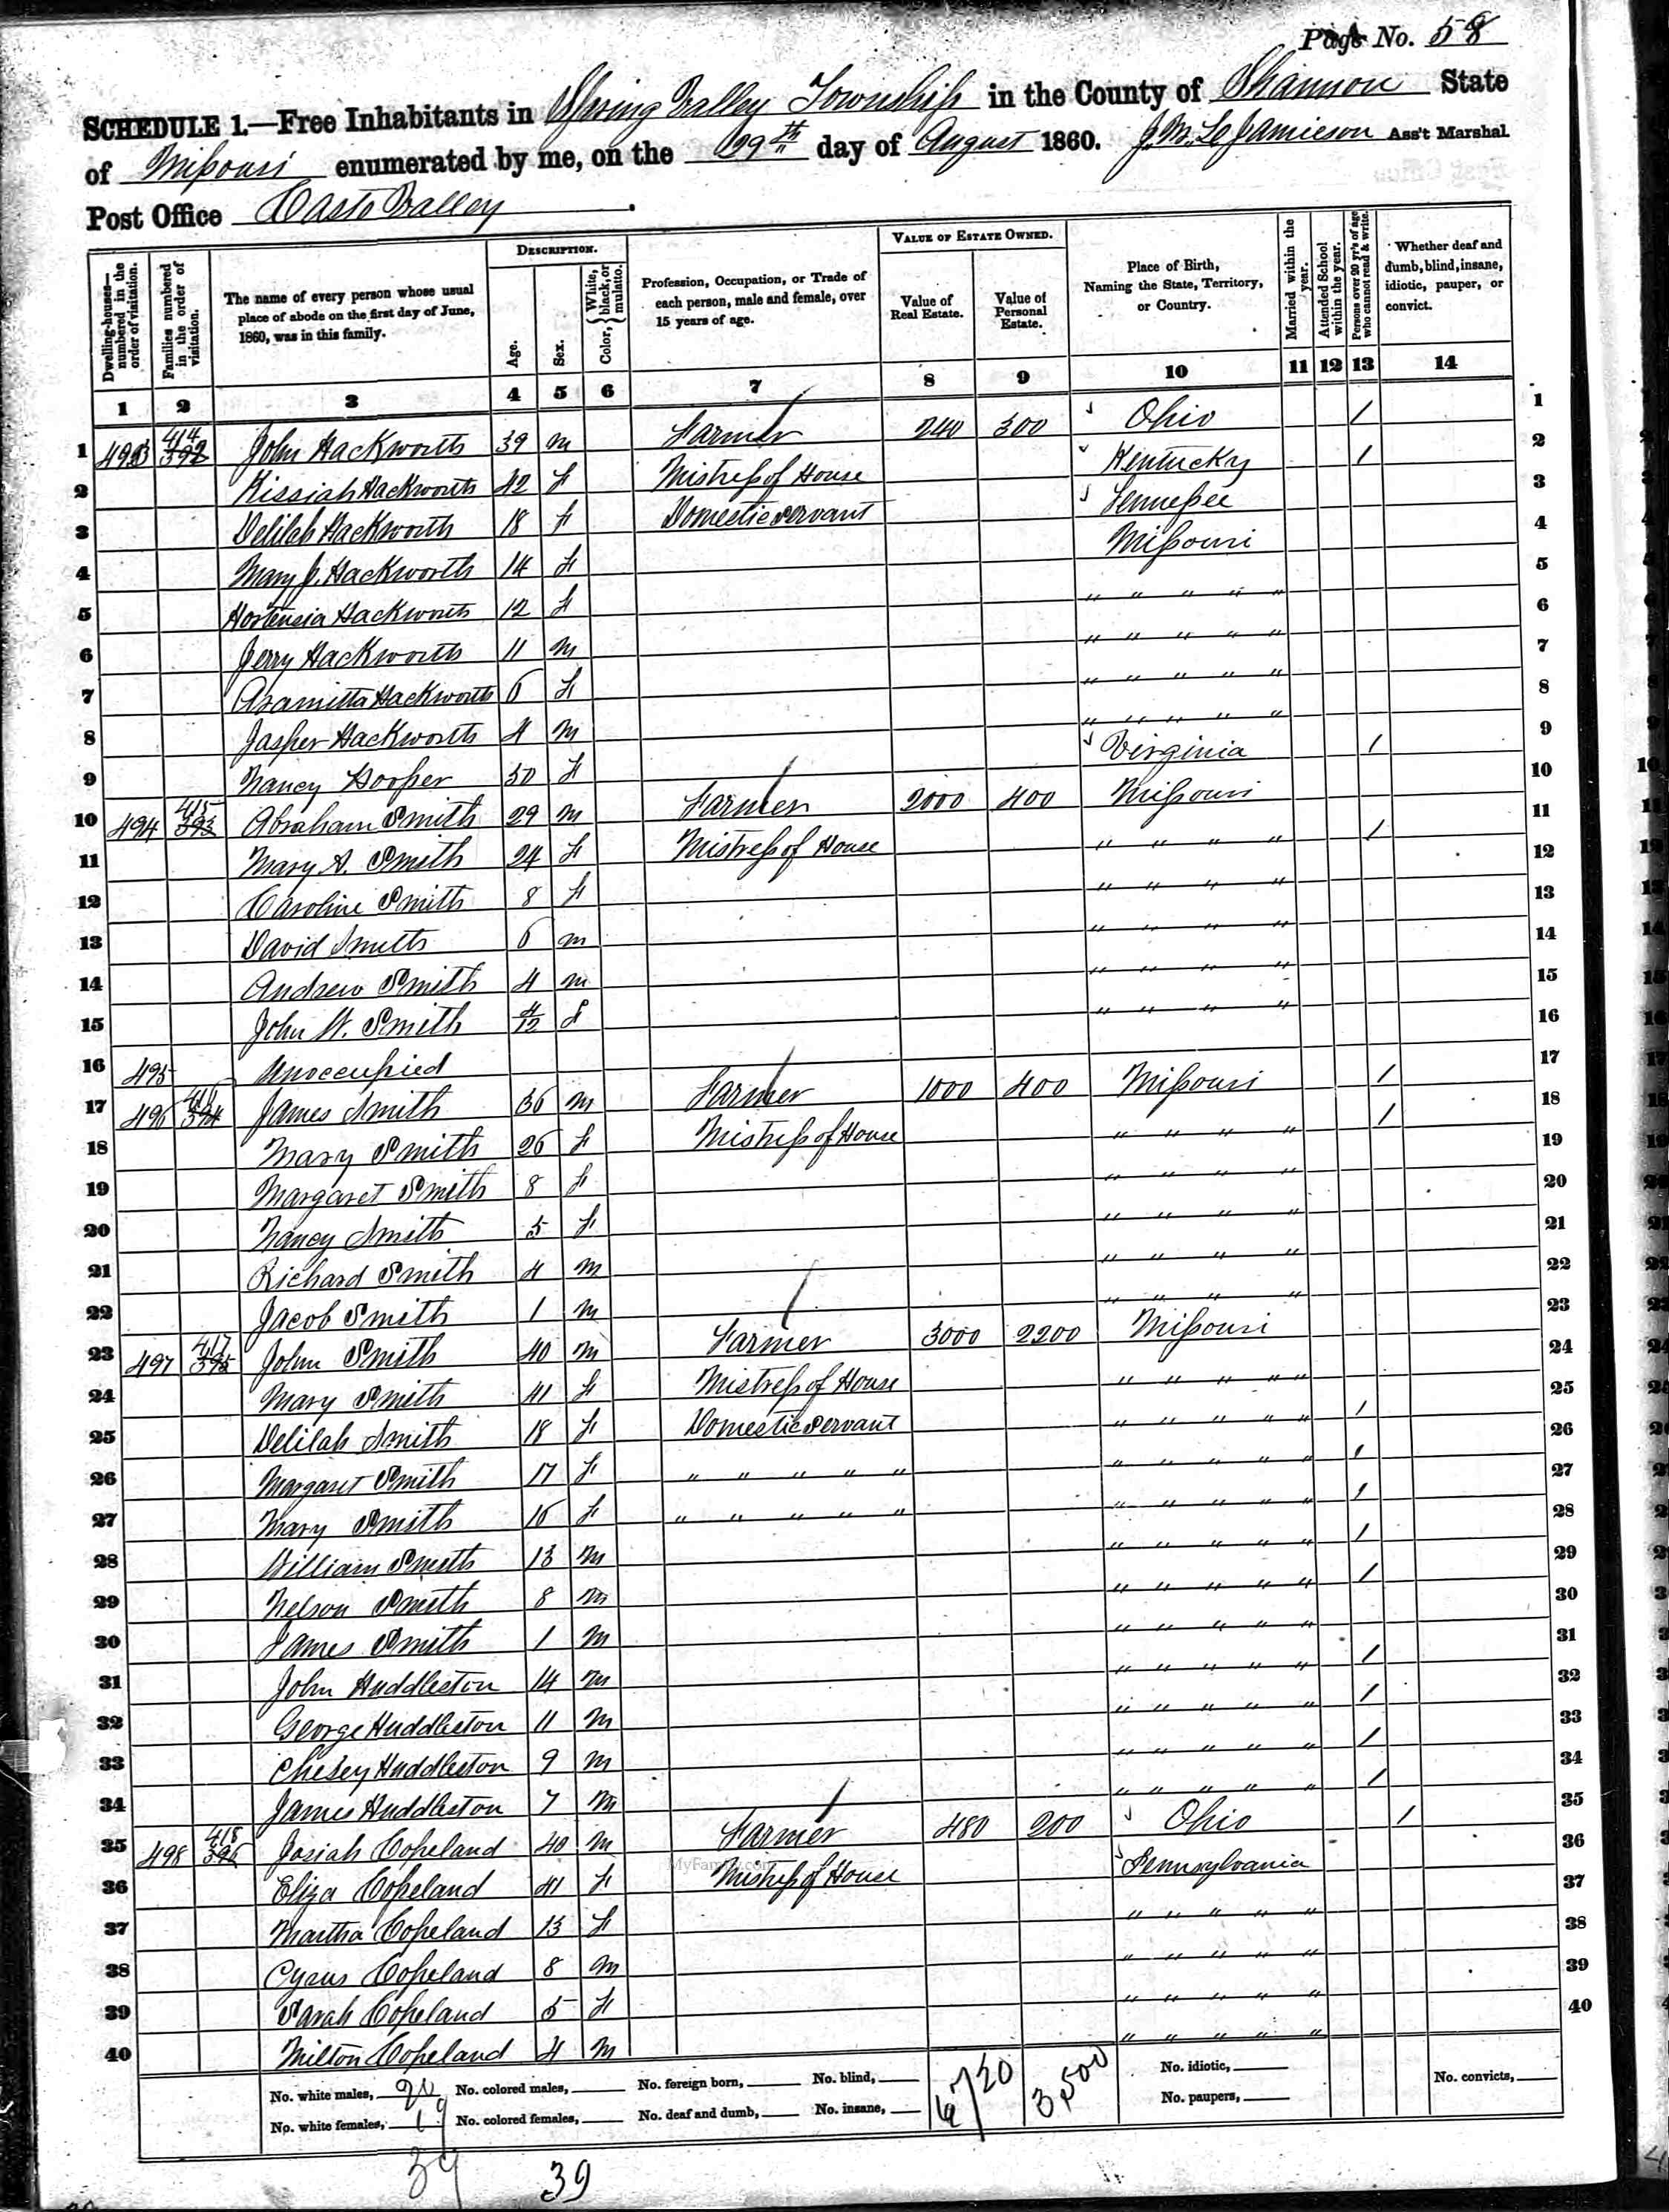 Page No. 58
SCHEDULE 1.—Free Inhabitants in Spring Valley Township in the County of Shannon State
of Missouri enumerated by me, on the 29th day of August 1860. Jamieson Ass't Marshal.
Post Office Valley
Dwelling-houses—numbered in the order of visitation.
Families numbered in the order of visitation.
The name of every person whose usual place of abode on the first day of June, 1860, was in this family.
DESCRIPTION.
Age.
Sex.
Color, { White, black, or mulatto.
Profession, Occupation, or Trade of each person, male and female, over 15 years of age.
VALUE OF ESTATE OWNED.
Value of Real Estate.
Value of Personal Estate.
Place of Birth, Naming the State, Territory, or Country.
Married within the year.
Attended School within the year.
Persons over 20 yr's of age who cannot read & write.
Whether deaf and dumb, blind, insane, idiotic, pauper, or convict.
1 2 3 4 5 6 7 8 9 10 11 12 13 14
1 493 414 392 John Hackworth 39 m Farmer 240 300 Ohio / 1
2 Kissiah Hackworth 42 f Mistress of House Kentucky / 2
3 Delilah Hackworth 18 f Domestic Servant Tennessee 3
4 Mary J. Hackworth 14 f Missouri 4
5 Hortensia Hackworth 12 f " " " " " 5
6 Jerry Hackworth 11 m " " " " " 6
7 Hackworth 6 f " " " " " 7
8 Jasper Hackworth 4 m " " " " " 8
9 Nancy Hooper 50 f Virginia / 9
10 494 415 393 Abraham Smith 29 m Farmer 2000 400 Missouri 10
11 Mary A. Smith 24 f Mistress of House " " " " / 11
12 Caroline Smith 8 f " " " " 12
13 David Smith 6 m " " " " 13
14 Andrew Smith 4 m " " " " 14
15 John W. Smith 4/12 f " " " " 15
16 495 Unoccupied 16
17 496 416 394 James Smith 36 m Farmer 1000 400 Missouri / 17
18 Mary Smith 26 f Mistress of House " " " " / 18
19 Margaret Smith 8 f " " " " 19
20 Nancy Smith 5 f " " " " 20
21 Richard Smith 4 m " " " " 21
22 Jacob Smith 1 m " " " " 22
23 497 417 395 John Smith 40 m Farmer 3000 2200 Missouri 23
24 Mary Smith 41 f Mistress of House " " " " " 24
25 Delilah Smith 18 f Domestic Servant " " " " " / 25
26 Margaret Smith 17 f " " " " " " " " " " / 26
27 Mary Smith 16 f " " " " " " " " " " / 27
28 William Smith 13 m " " " " " / 28
29 Nelson Smith 8 m " " " " " / 29
30 James Smith 1 m " " " " " 30
31 John Huddleston 14 m " " " " " / 31
32 George Huddleston 11 m " " " " " / 32
33 Huddleston 9 m " " " " " / 33
34 James Huddleston 7 m " " " " " / 34
35 498 418 396 Josiah Copeland 40 m Farmer 480 200 Ohio / 35
36 Eliza Copeland 41 f Mistress of House Pennsylvania 36
37 Martha Copeland 13 f " " " " " 37
38 Cyrus Copeland 8 m " " " " " 38
39 Sarah Copeland 5 f " " " " " 39
40 Milton Copeland 4 m " " " " " 40
MyFamily.com
No. white males, 20 No. colored males, No. foreign born, No. blind, 6720 3,500 No. idiotic, No. convicts,
No. white females, 19 No. colored females, No. deaf and dumb, No. insane, No. paupers,
39 39